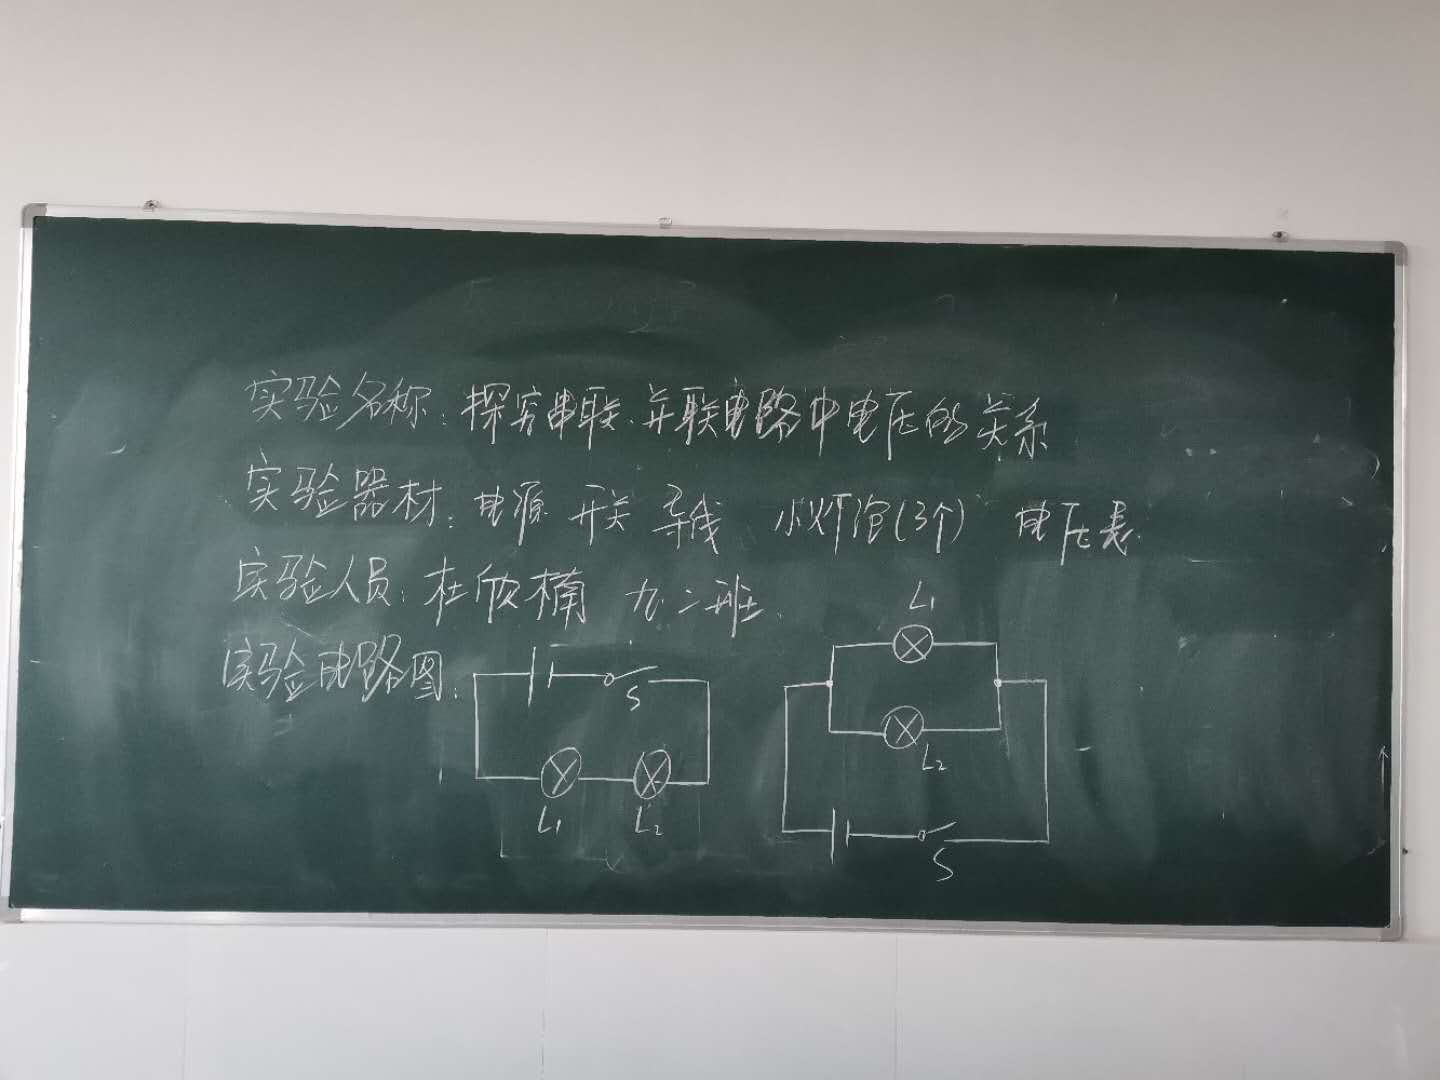 实验名称：探究串联、并联电路中电压的关系
实验器材：电源 开关 导线 小灯泡(3个) 电压表
实验人员：杜欣楠 九.二班.
实验电路图：
L₁
S
L₂
L₁ L₂
S